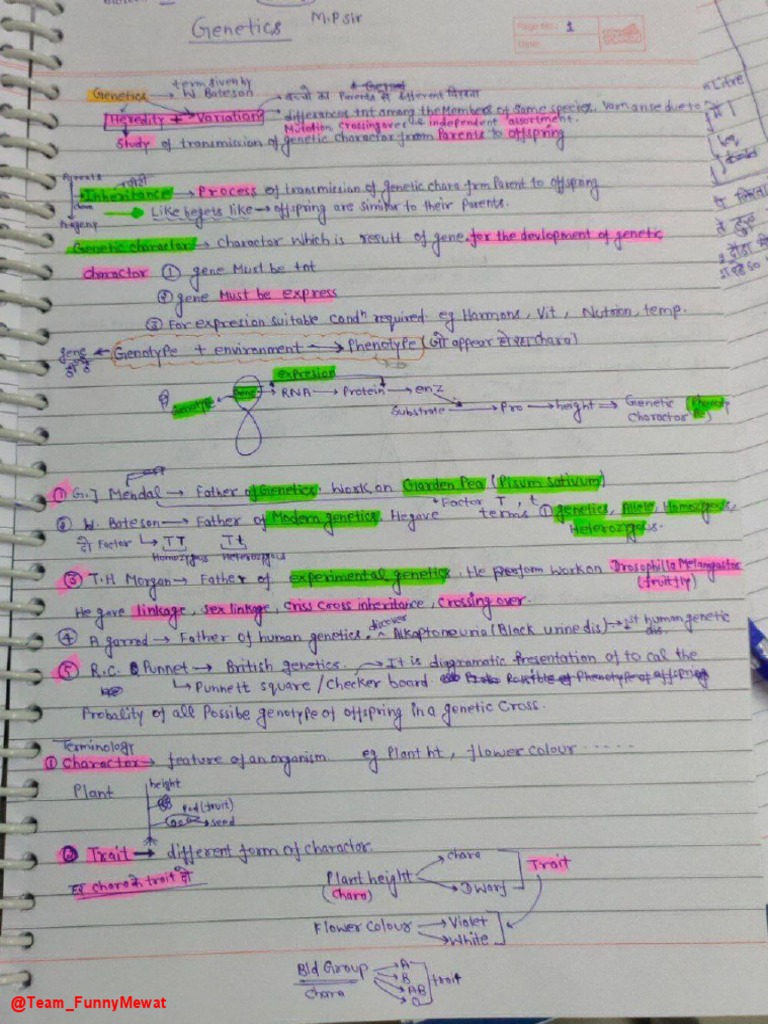 Genetics M.P sir
Page No.: 1
Date:
term given by
Genetics → W Bateson → बच्चो का Parents से different दिखना
Heredity + Variation → differences tnt among the Members of same species. Vam anse due to
Mutation crossing over & independent assortment.
Study of transmission of genetic charactar from Parents to offspring
Inheritance → Process of transmission of genetic chara frm Parent to offspring
Progeny → Like begets like → offspring are similar to their Parents.
Genetic charactor → charactor which is result of gene. for the devlopment of genetic
charactor ① gene Must be tnt
② gene Must be express
③ For expresion suitable condⁿ required. eg Harmons, Vit, Nutrion, temp.
gene ← Genotype + environment → Phenotype (जो appear हो रहा chara)
expresion
Genotype ← Gene → RNA → Protein → enz
Substrate → Pro → height → Genetic
Charactor
① G.J Mendal → Father of Genetics. Work on Garden Pea (Pisum sativum)
Factor T, t
② W. Bateson → Father of Modern genetics. He gave terms ① genetics, Allele, Homozygous,
Heterozygous.
दो Factor ↳ TT Tt
Homozygous Heterozygous
③ T.H Morgan → Father of experimental genetics. He Perform work on Drosophilla Melangastor
(fruit fly)
He gave linkage, sex linkage, Criss cross inheritance, Crossing over.
④ A garrod → Father of human genetics. discover Alkaptoneuria (Black urine dis) → 1st human genetic
dis.
⑤ R.C. Punnet → British genetics. → It is diagramatic Presentation of to cal the
↳ Punnett square / Checker board Possible of Phenotype of offspring
Probality of all Possibe genotype of offspring in a genetic Cross.
Terminology
① Charactor → feature of an organism. eg Plant ht, flower colour .....
Plant height
Pod (fruit)
→ seed
② Trait → different form of charactor.
हर chara के trait दो
Plant height → chara
(Chara) → Dwarf
Trait
Flower colour → Violet
→ White
Bld Group → A
Chara → B
→ AB
→ O
trait
@Team_FunnyMewat